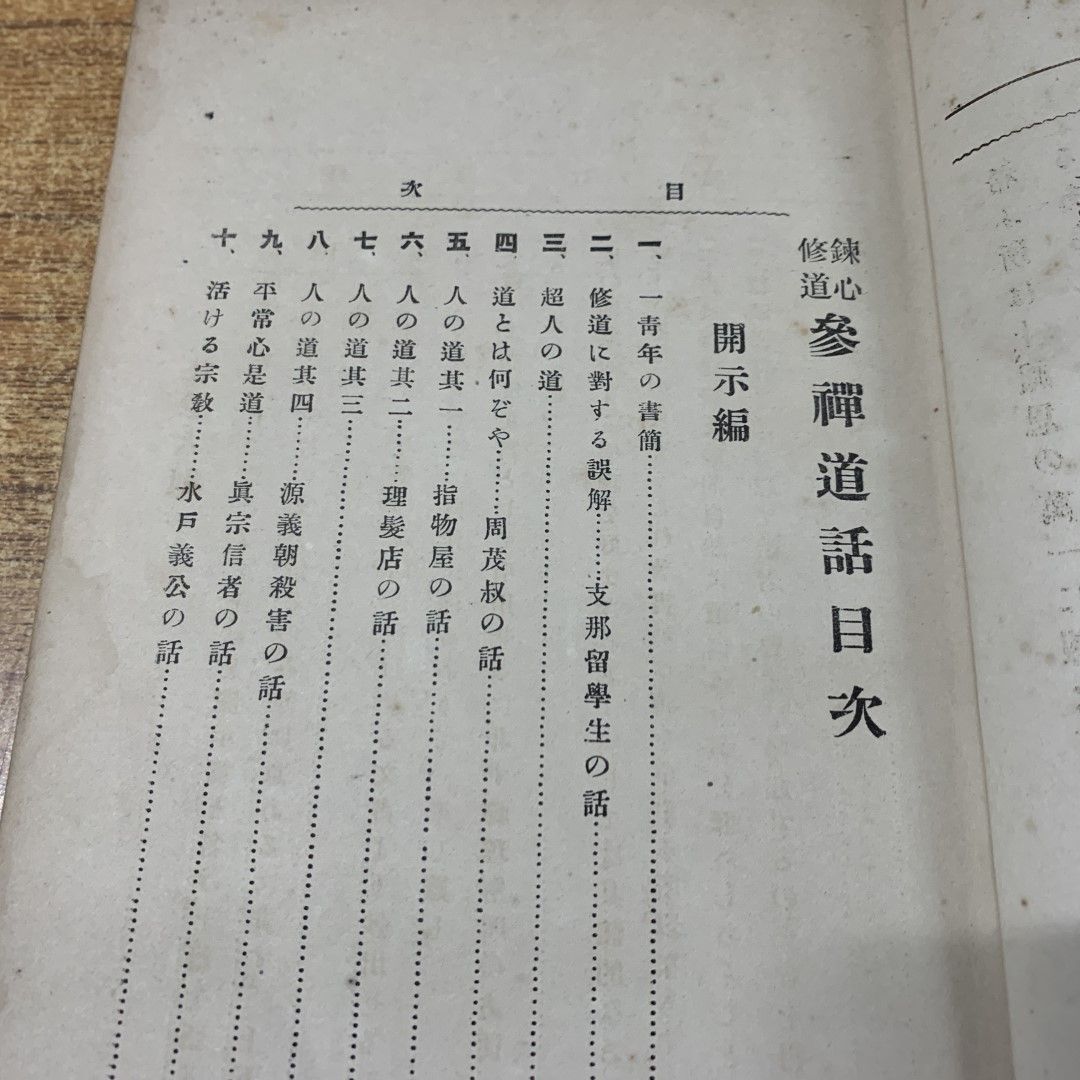 目次
鍊心修道 參禪道話目次
開示編
一、一靑年の書簡
二、修道に對する誤解………支那留學生の話
三、超人の道
四、道とは何ぞや………周茂叔の話
五、人の道其一………指物屋の話
六、人の道其二………理髮店の話
七、人の道其三
八、人の道其四………源義朝殺害の話
九、平常心是道………眞宗信者の話
十、活ける宗敎………水戶義公の話